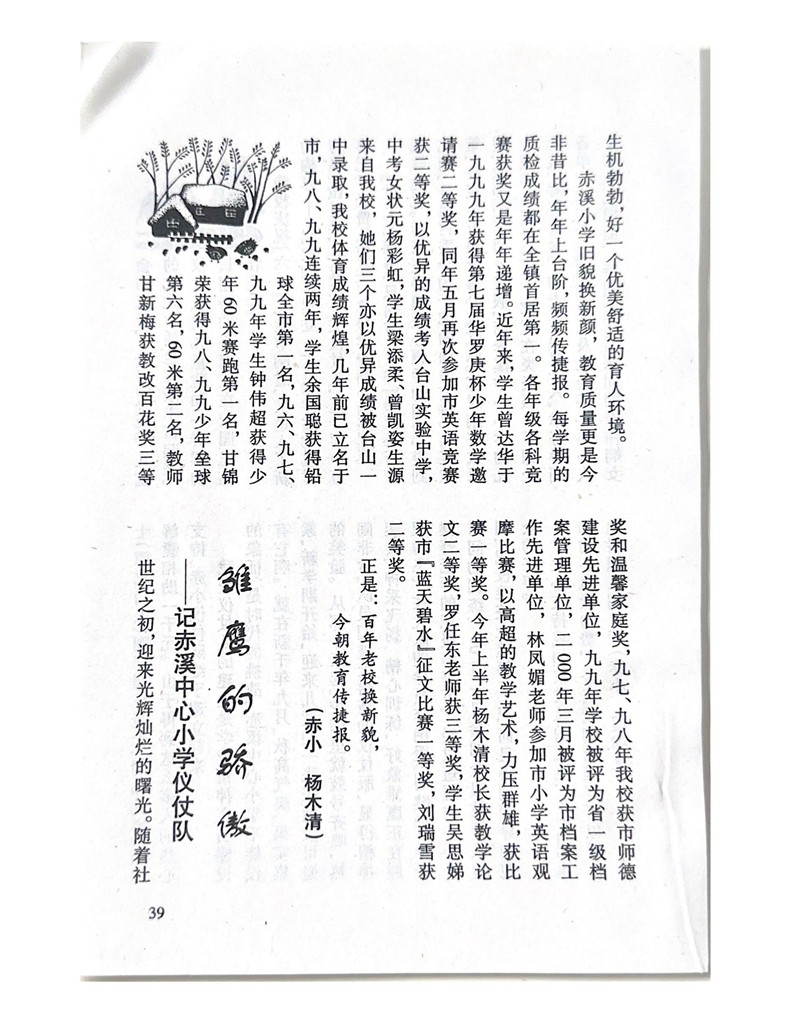 生机勃勃，好一个优美舒适的育人环境。
赤溪小学旧貌换新颜，教育质量更是今
非昔比，年年上台阶，频频传捷报。每学期的
质检成绩都在全镇首居第一。各年级各科竞
赛获奖又是年年递增。近年来，学生曾达华于
一九九九年获得第七届华罗庚杯少年数学邀
请赛二等奖，同年五月再次参加市英语竞赛
获二等奖，以优异的成绩考入台山实验中学，
中考女状元杨彩虹，学生梁添柔、曾凯姿生源
来自我校，她们三个亦以优异成绩被台山一
中录取，我校体育成绩辉煌，几年前已立名于
市，九八、九九连续两年，学生余国聪获得铅
球全市第一名，九六、九七、
九九年学生钟伟超获得少
年60米赛跑第一名，甘锦
荣获得九八、九九少年垒球
第六名，60米第二名，教师
甘新梅获教改百花奖三等
奖和温馨家庭奖，九七、九八年我校获市师德
建设先进单位，九九年学校被评为省一级档
案管理单位，二000年三月被评为市档案工
作先进单位，林凤媚老师参加市小学英语观
摩比赛，以高超的教学艺术，力压群雄，获比
赛一等奖。今年上半年杨木清校长获教学论
文二等奖，罗任东老师获三等奖，学生吴思娣
获市『蓝天碧水』征文比赛一等奖，刘瑞雪获
二等奖。
正是：百年老校换新貌，
今朝教育传捷报。
（赤小 杨木清）
雏鹰的骄傲
——记赤溪中心小学仪仗队
世纪之初，迎来光辉灿烂的曙光。随着社
39